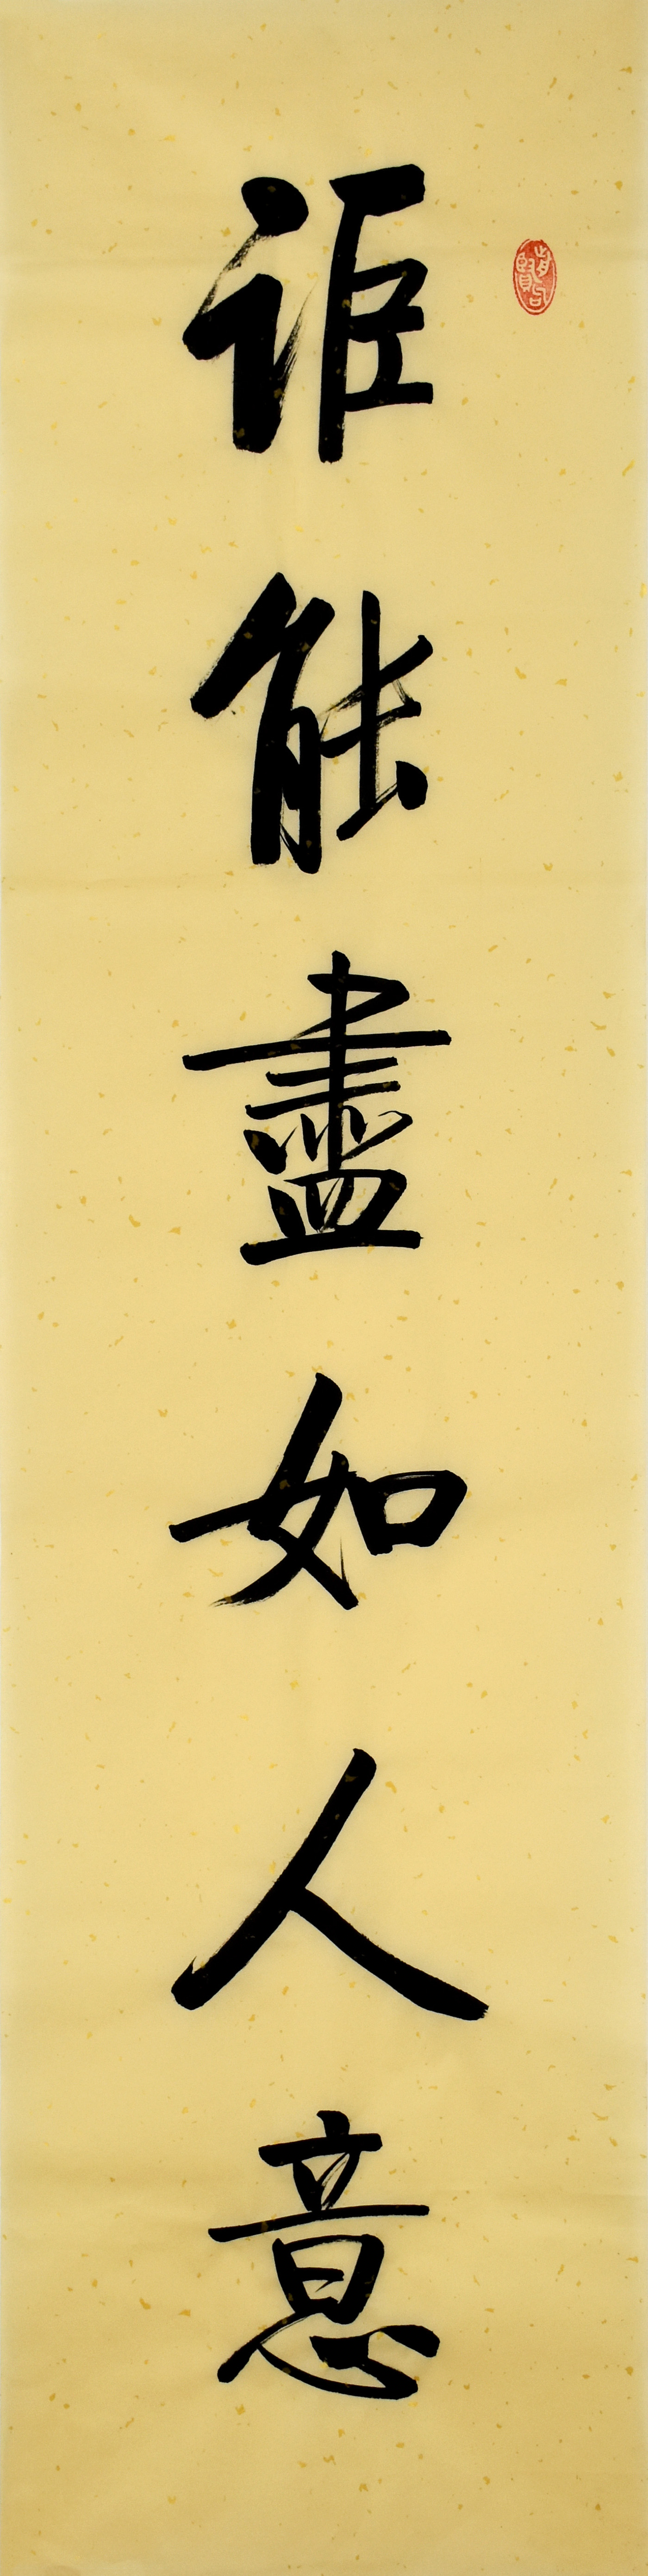 詎能盡如人意